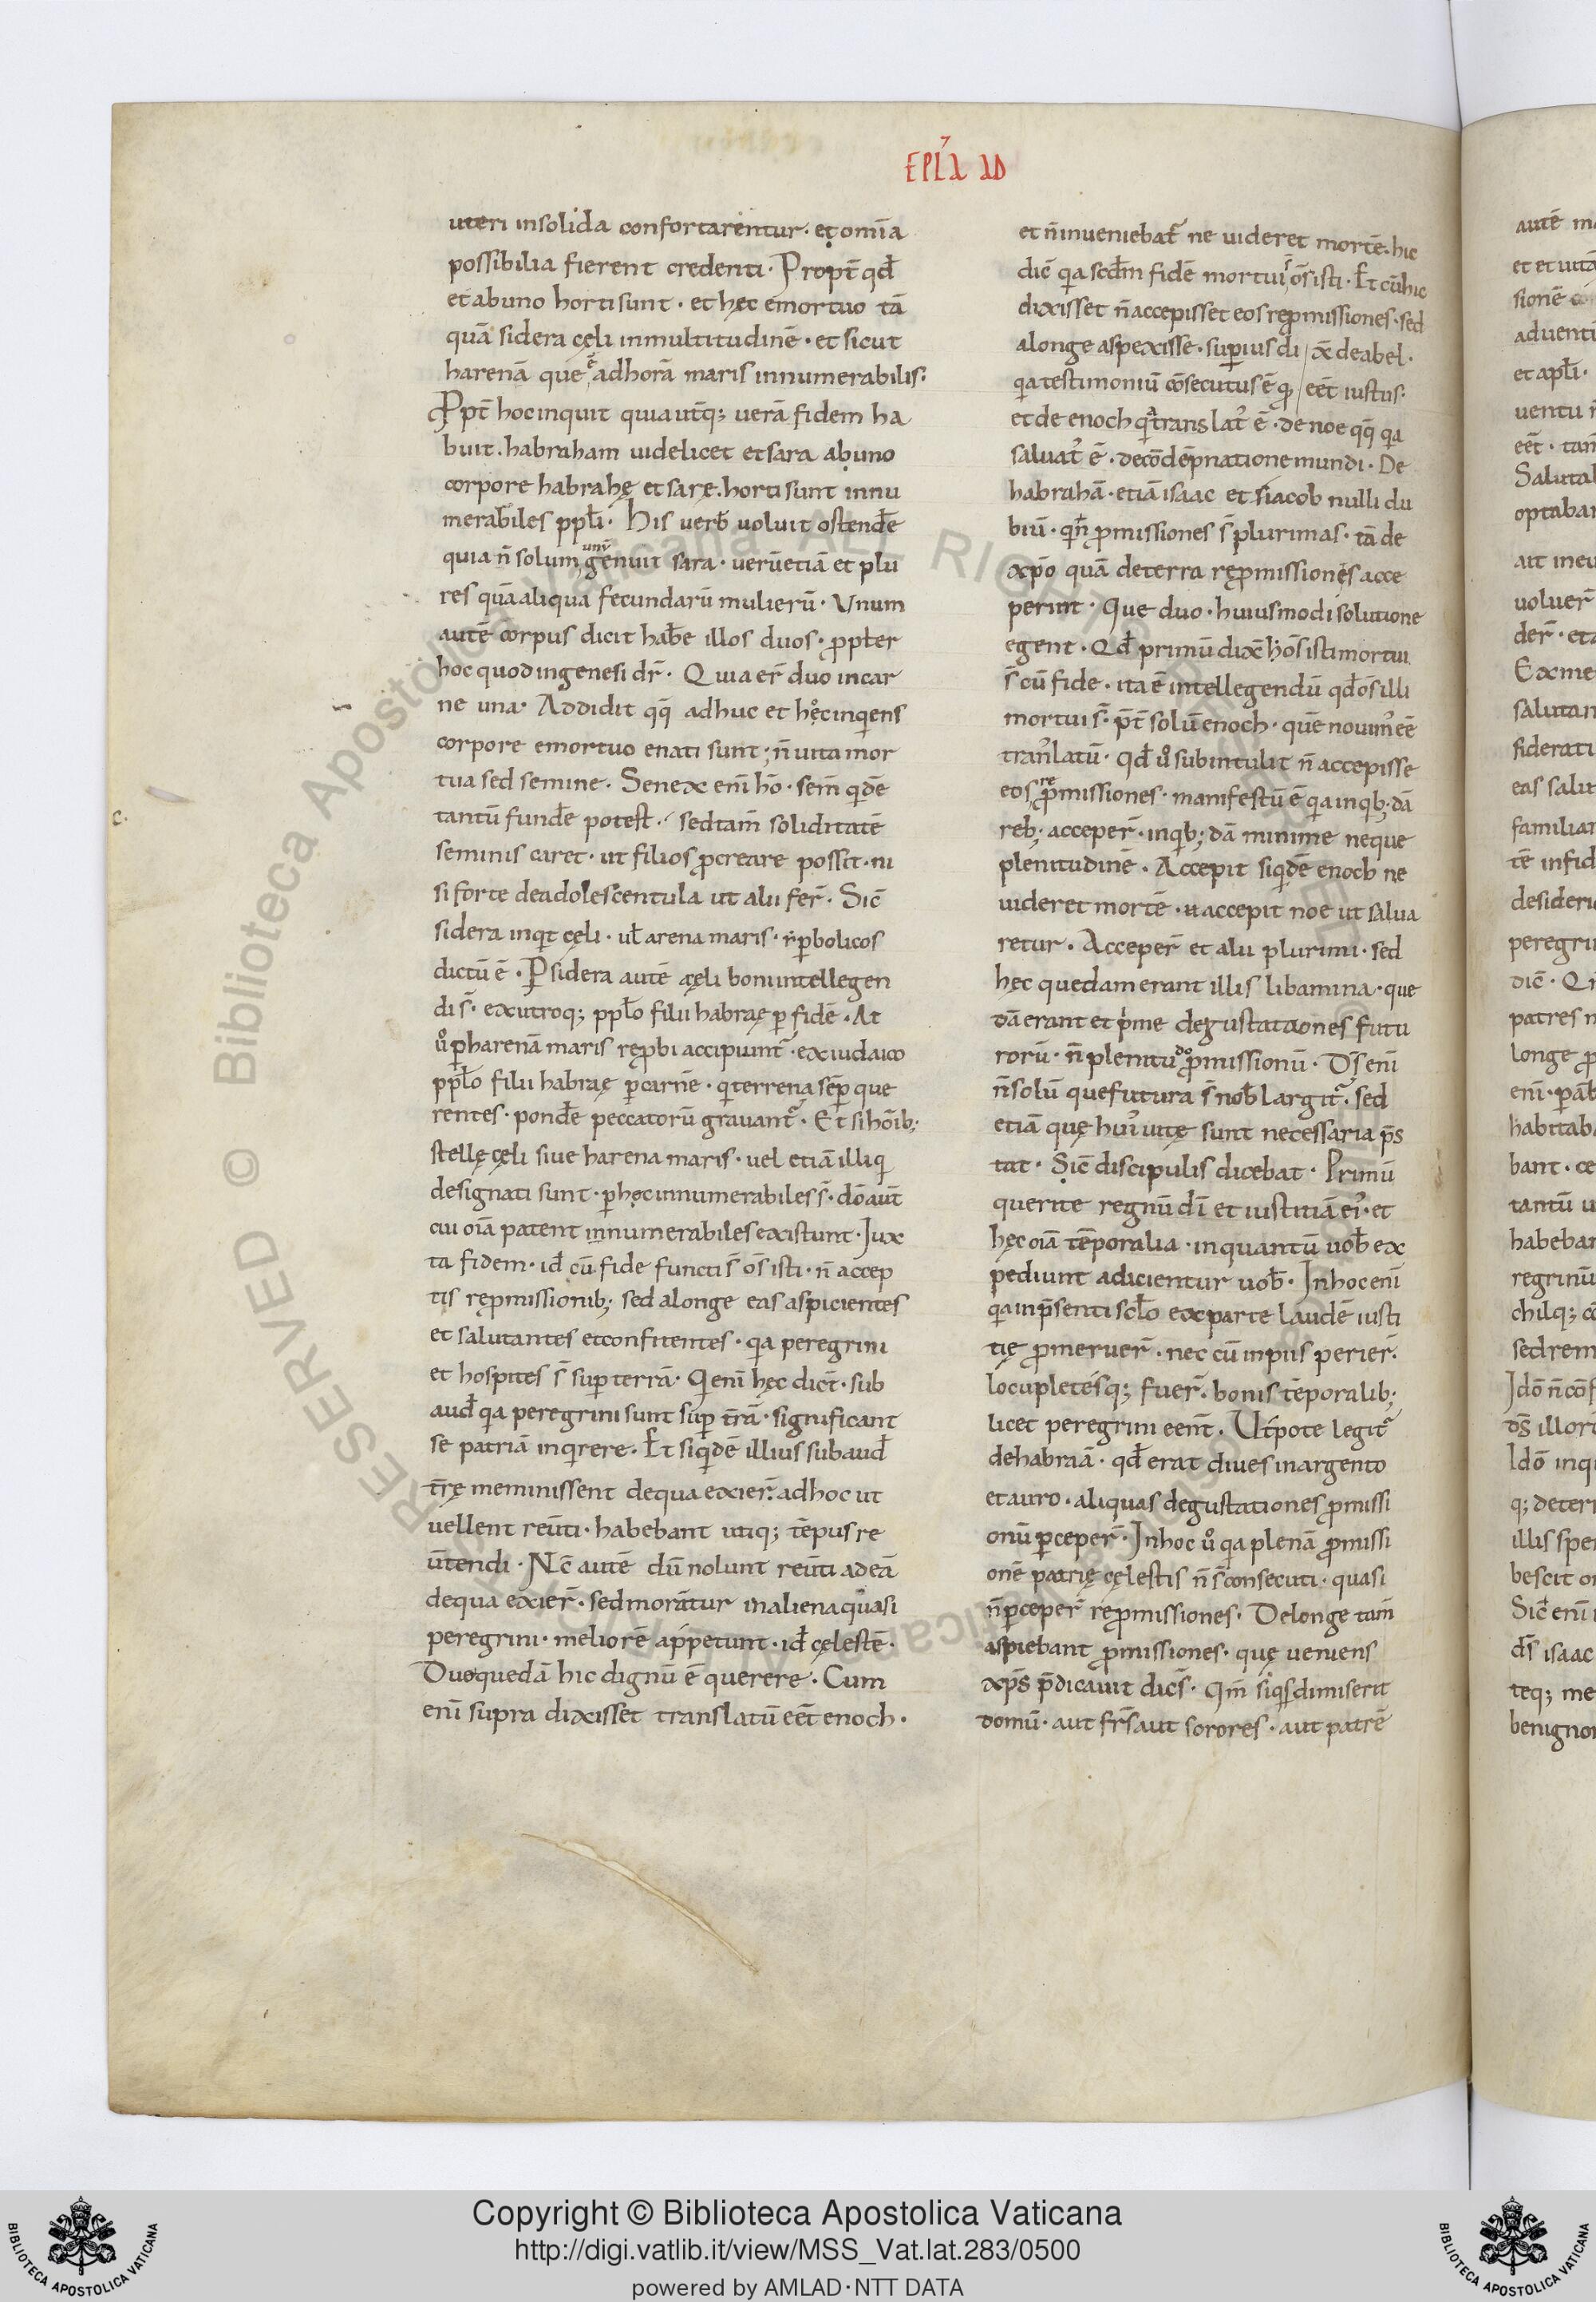 EPLA AD
uteri insolida confortarentur. et omīa
possibilia fierent credenti. Propt̄ qđ
et ab uno horti sunt. et hęc emortuo tā
quā sidera cęli inmultitudinē. et sicut
harenā que ē adhorā maris innumerabilis.
Ppt̄ hoc inquit quia utq; uerā fidem ha
buit. habraham uidelicet et sara ab uno
corpore habrahę et sarę. horti sunt innu
merabiles ppłi. His uerb̄ uoluit ostendē
quia n̄ solum unū genuit sara. uerū etiā et plu
res quā aliqua fecundarū mulierū. Vnum
autē corpus dicit habē illos duos. ppter
hoc quod ingenesi dr̄. Quia er̄ duo incar
ne una. Addidit qq̄ adhuc et hęc inqiens
corpore emortuo enati sunt; n̄ uita mor
tua sed semine. Senex enī hō. sem̄ qidē
tantū fundē potest. sed tam̄ soliditatē
seminis caret. ut filios pcreare possit. ni
si forte deadolescentula ut alii fer̄. Sic̄
sidera inqit cęli. uł arena maris. yꝑbolicos
dictū ē. P sidera autē cęli boni intellegen
di s̄. exutroq; ppło filii habraę ꝑ fidē. At
ů ꝑ harenā maris rępbi accipiunt̄. exiudaico
ppło filii habraę ꝑ carnē. qi terrena sēꝑ que
rentes. pondē peccatorū grauant̄. Et si hōib;
stellę cęli siue harena maris. uel etiā illi qi
designati sunt. ꝑ hęc innumerabiles s̄. dō aut̄
cui oīa patent innumerabiles existunt. Jux
ta fidem. id̄ cū fide functi s̄ ōs isti. n̄ accep
tis rępmissionib; sed alonge eas aspicientes
et salutantes et confitentes. qia peregrini
et hospites s̄ suꝑ terrā. Qi enī hęc dic̄t. sub
aud̄ qia peregrini sunt suꝑ tr̄ā. significant
se patriā inqirere. Et siqidē illius subaud̄
tr̄ę meminissent dequa exier̄. adhoc ut
uellent reūti. habebant utiq; tēpus re
ūtendi. Nc̄ autē dū nolunt reūti adeā
dequa exier̄. sed morantur inaliena quasi
peregrini. meliorē appetunt. id̄ cęlestē.
Duo quedā hic dignū ē querere. Cum
enī supra dixisset translatū eēt enoch.
et n̄ inueniebat̄ ne uideret mortē. hic
dic̄ qia scd̄m fidē mortui s̄ ōs isti. Et cū hic
dixisset n̄ accepisset eos rępmissiones. sed
alonge aspexisse. suꝑius di/x̄ de abel.
qia testimoniū cōsecutus ē qđ / eēt iustus.
et de enoch qia translat' ē. de noe qq̄ qia
saluat' ē. decōdēpnatione mundi. De
habrahā. etiā isaac et siacob nulli du
biū. qin̄ pmissiones s̄ plurimas. tā de
xpo quā deterra rępmissionęs acce
perint. Que duo. huiusmodi solutione
egent. Qđ primū dix̄ hōs isti mortui
s̄ cū fide. ita ē intellegendū qđ ōs illi
mortui s̄. p̄t̄ solū enoch. quē nouim' eē
tran'latū. qđ ů subintulit n̄ accepisse
eos repmissiones. manifestū ē qia inqib; dā
reb; acceper̄. inqib; dā minime neque
plenitudinē. Accepit siqidē enoch ne
uideret mortē. accepit noe ut salua
retur. Acceper̄ et alii plurimi. sed
hęc quedam erant illis libamina. que
dā erant et pime degustationes futu
rorū. n̄ plenitudo pmissionū. Ds̄ enī
n̄ solū que futura s̄ nob̄ largit̄. sed
etiā quę hui' uitę sunt necessaria p̄s
tat. Sic̄ discipulis dicebat. Primū
querite regnū dī et iustitiā ei'. et
hęc oīa tēporalia. inquantū uob̄ ex
pediunt adicientur uob̄. Inhoc enī
qia inp̄senti scło exparte laudē iusti
tię pmeruer̄. nec cū inpiis perier̄.
locupletésq; fuer̄. bonis tēporalib;
licet peregrini eent̄. Utpote legit̄
dehabraā. qđ erat diues inargento
et auro. aliquas degustationes pmissi
onū ꝑceper̄. Inhoc ů qia plenā pmissi
onē patrię cęlestis n̄ s̄ consecuti. quasi
n̄ ꝑceper̄ repmissiones. Delonge tam̄
aspiebant pmissiones. quę ueniens
xps̄ p̄dicauit dic̄s. Qm̄ siqis dimiserit
domū. aut fr̄s aut sorores. aut patrē
Copyright © Biblioteca Apostolica Vaticana
http://digi.vatlib.it/view/MSS_Vat.lat.283/0500
powered by AMLAD·NTT DATA